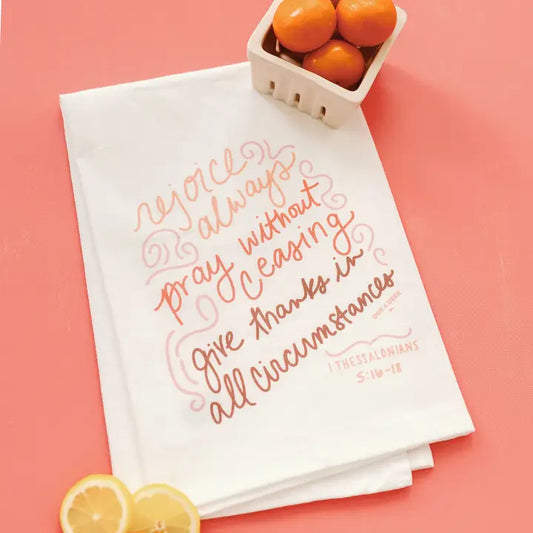 rejoice
always
pray without
ceasing
give thanks in
all circumstances
1 THESSALONIANS
5:16-18